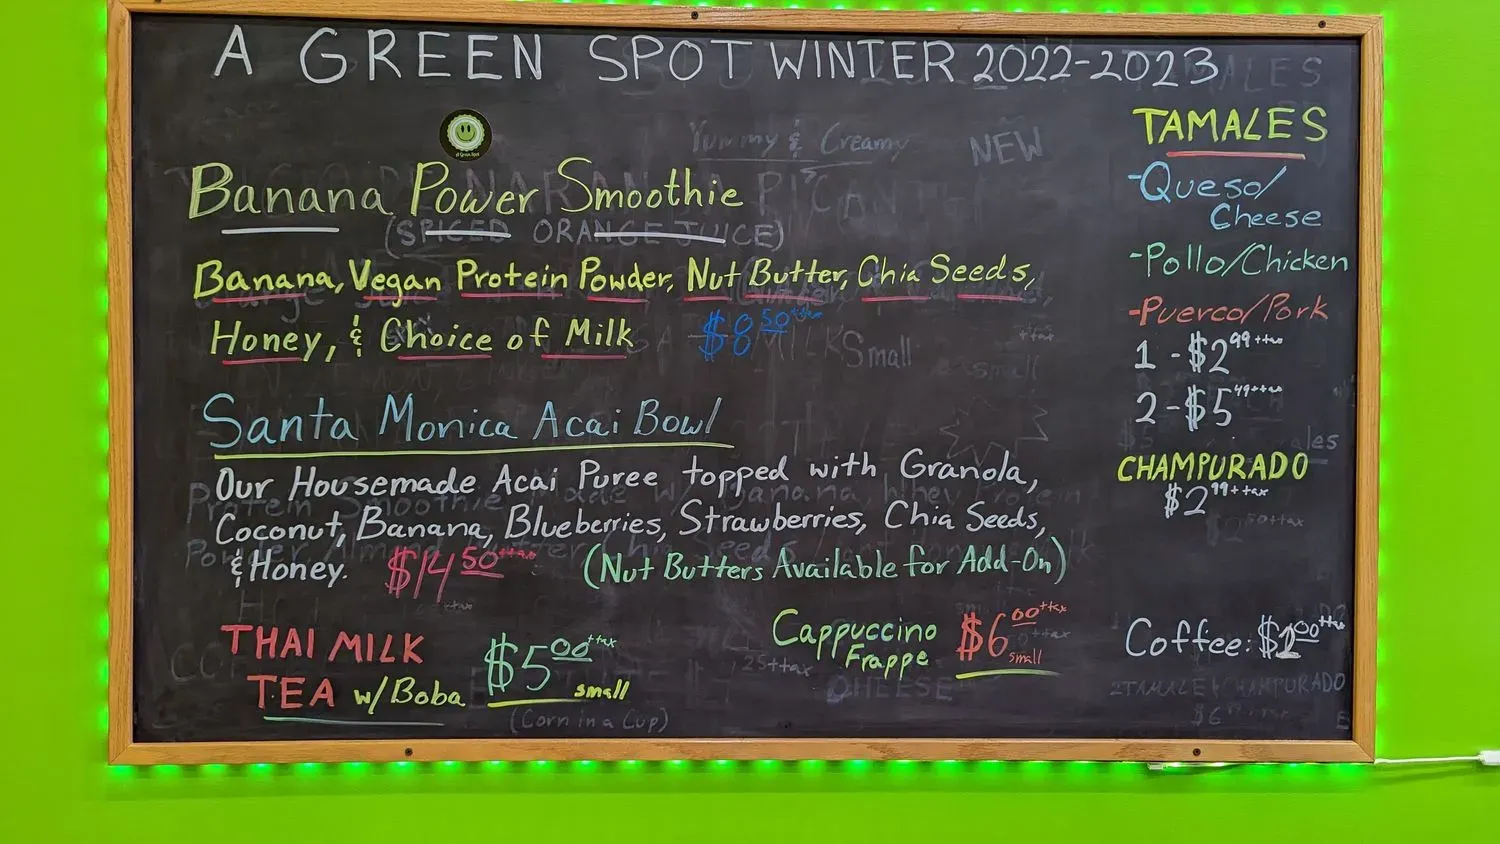 A GREEN SPOT WINTER 2022-2023
Yummy & Creamy
NEW
Banana Power Smoothie
(SPICED ORANGE JUICE)
Banana, Vegan Protein Powder, Nut Butter, Chia Seeds,
Honey, & Choice of Milk $8.50 + tax
Small
small
Santa Monica Acai Bowl
Our Housemade Acai Puree topped with Granola,
Coconut, Banana, Blueberries, Strawberries, Chia Seeds,
& Honey. $14.50 + tax (Nut Butters Available for Add-On)
THAI MILK
TEA w/Boba
$5.00 + tax
small
(Corn in a Cup)
Cappuccino
Frappe
$6.00 + tax
small
CHEESE
TAMALES
-Queso/
Cheese
-Pollo/Chicken
-Puerco/Pork
1 - $2.99 + tax
2 - $5.49 + tax
CHAMPURADO
$2.99 + tax
Coffee: $2.00 + tax
2 TAMALE & CHAMPURADO